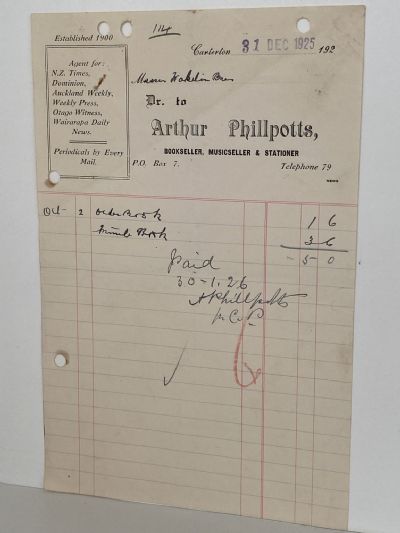 Established 1900
114
Carterton 31 DEC 1925 192
Agent for:
N.Z. Times,
Dominion,
Auckland Weekly,
Weekly Press,
Otago Witness,
Wairarapa Daily
News.
Periodicals by Every
Mail.
Messrs Wakelin Bros
Dr. to
Arthur Phillpotts,
BOOKSELLER, MUSICSELLER & STATIONER
P.O. Box 7. Telephone 79
Oct 2 Order Book 1 6
Book 3 6
- 5 0
Paid
30-1.26
A Phillpotts